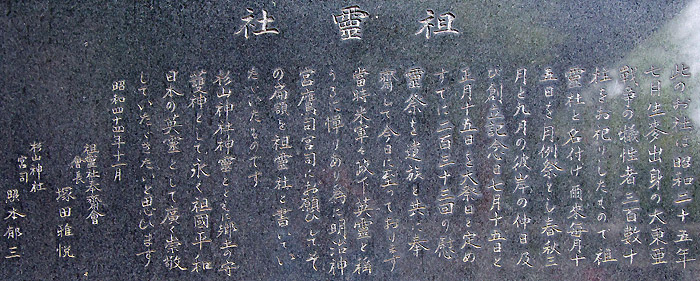 祖靈社
此のお社は昭和三十五年
七月生麥出身の大東亜
戦争の犠牲者二百数十
柱をお祀りしたもので祖
靈社と名付け爾来毎月十
五日を月例祭とし春秋三
月と九月の彼岸の仲日及
び創立記念日七月十五日と
正月十五日を大祭日と定め
すでに二百三十三回の慰
靈祭を遺族と共に奉
齋して今日に至っております
當時米軍の政下英靈と稱
うるに憚りあり為に明治神
宮鷹司宮司にお願ひしてそ
の扁額を祖靈社と書いてい
たゞいたものです
杉山神社神靈とともに郷土の守
護神として永く祖國平和
日本の英靈として厲く崇敬
していたゞきたいと思います
昭和四十四年十一月
祖靈社奉齋會
會長 塚田雅悦
杉山神社
宮司 照本郁三